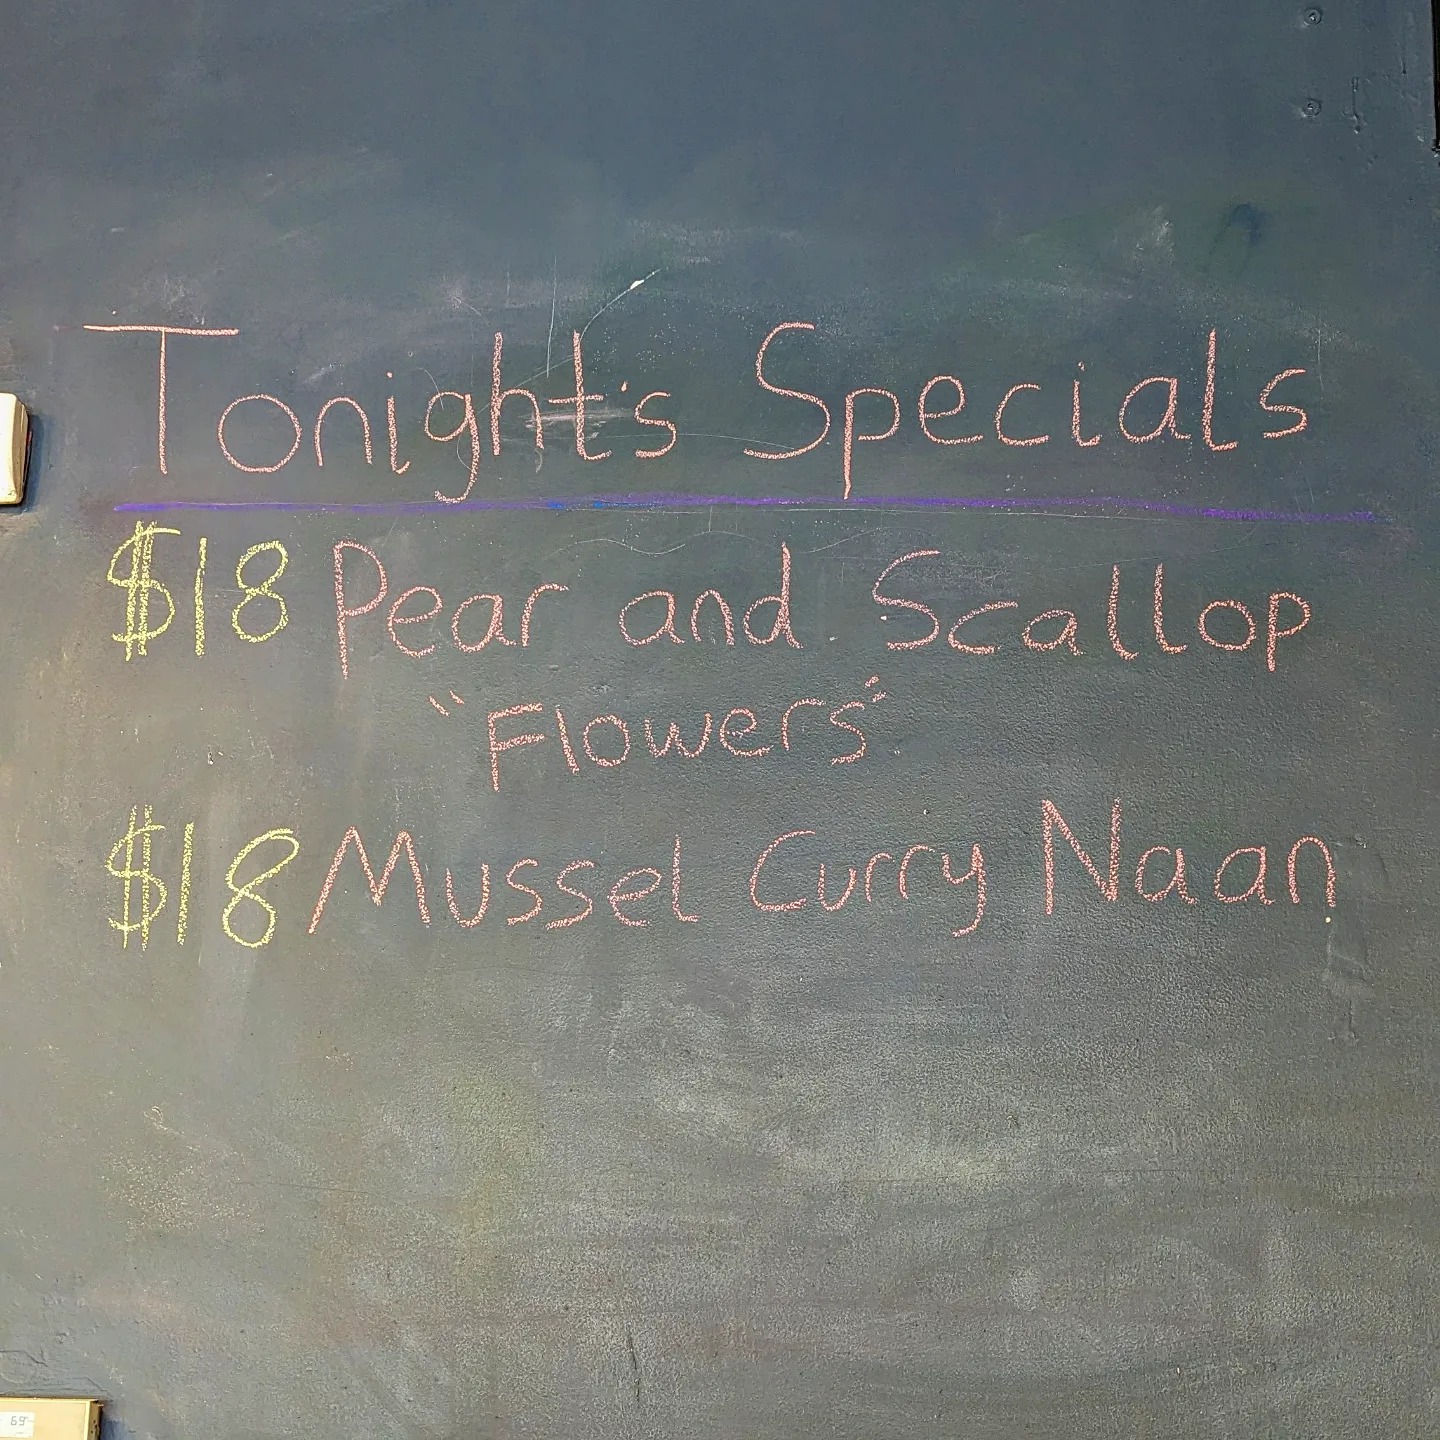 Tonight's Specials
$18 Pear and Scallop
"Flowers"
$18 Mussel Curry Naan
69-